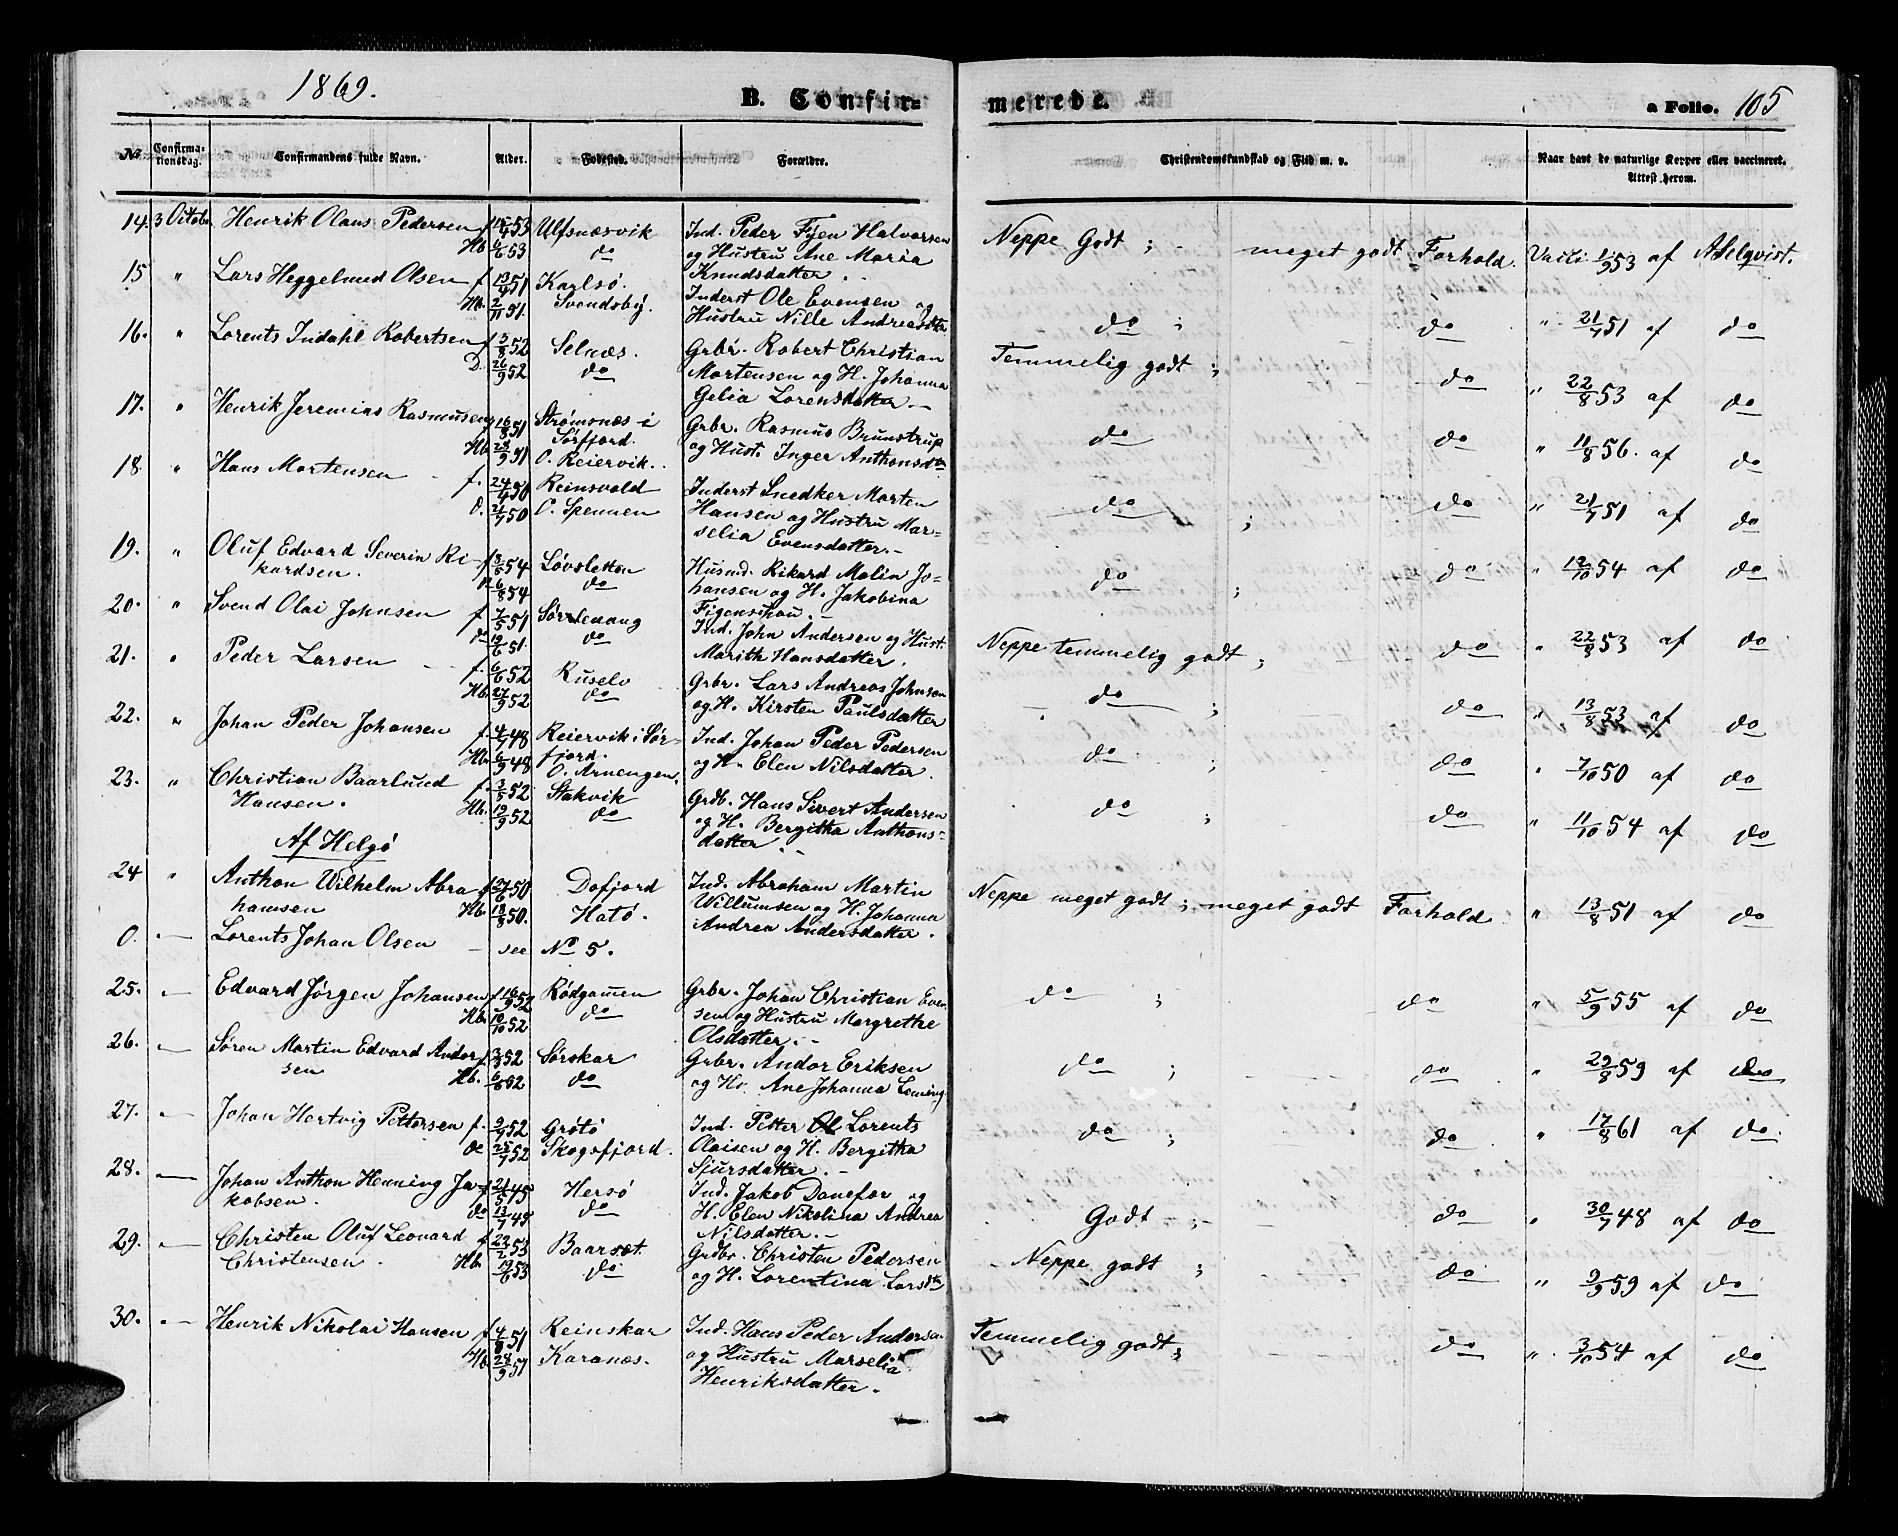 1869.
B. Confir=
merede.
a Folio. 105
No
Confirma-
tionsdag.
Confirmandens fulde Navn.
Alder.
Fødested.
Forældre.
Christendomskundskab og Flid m. v.
Naar havt de naturlige Kopper eller vaccineret.
Attest herom.
14. 3 October Henrik Olaus Pedersen f 53 Ulfsnæsvik Ind. Peder Fyen Halvorsen Neppe Godt ; meget godt Forhold. Vacci 1/9 53 af A. Selqvist.
Hb 6/6 53 do og Hustru Ane Maria
Knudsdatter.
15 " Lars Heggelund Olsen f 13/9 51 Karlsø. Inderst Ole Evensen og do ; do " 21/7 51 af do
Hb. 2/11 51. Svendsby. Hustru Nille Andreasdtr
16. " Lorents Indahl Robertsen f 3/8 52 Selnæs. Grbr. Robert Christian Temmelig godt ; do " 22/8 53 af do
D. 26/9 52 do Mortensen og H. Johanna
Gelia Lorensdatter.-
17. " Henrik Jeremias Rasmussen 16/8 51 Strømsnæs i Grbr. Rasmus Brunstrup do do " 11/8 56. af do
Sørfjord. og Hust. Inger Anthonsdtr
Hb 28/9 51 O. Reiervik.
18. " Hans Mortensen f. 24/4 50 Reinsvold Inderst Snedker Morten do ; do " 21/7 51 af do
d. 21/7 50 O. Spennen Hansen og Hustru Mar=
selia Evensdatter.-
19. " Oluf Edvard Severin Ri- f 54 Løvsletten Husmd. Rikard Malin Jo= do ; do " 12/10 54 af do
kardsen. 6/8 54 do hansen og H. Jakobina
Figenschau.-
20. " Svend Olai Johnsen f 7/5 51 Sørlenang Ind. John Andersen og Hust. Neppe temmelig godt ; do " 22/8 53 af do
do 19/6 51 do Marith Hansdatter.
21. " Peder Larsen f. 6/6 52 Ruselv Grbr. Lars Andreas Johnsen do ; do " 13/8 53 af do
Hb. 27/9 52 do og H. Kirsten Paulsdatter
22. " Johan Peder Johansen f 4/7 48 Reiervik i Sør- Ind. Johan Peder Pedersen do ; do " 7/10 50 af do
Hb 6/9 48 fjord. og H. Elen Nilsdatter.
O. Arnengen.
23. " Christian Baarlund f. 3/5 52 Stakvik Grdb. Hans Sivert Andersen do ; do " 11/10 54 af do
Hansen. Hb. 19/9 52 do og H. Bergitha Anthons=
datter.
Af Helgø
24 " Anthon Wilhelm Abra- f 27/6 50 Dafjord Ind. Abraham Martin Neppe meget godt ; meget godt Forhold " 13/8 51 af do
hamsen Hb. 18/8 50. Hatø. Willumsen og H. Johanna
Andrea Andersdatter.
0. Lorents Johan Olsen - see No 5.
25. Edvard Jørgen Johansen f 16/9 52 Rødgammen Grbr. Johan Christian Even- do ; do " 5/9 55 af do
Hb. 10/10 52 do sen og Hustru Margrethe
Olsdatter.-
26. Søren Martin Edvard Andor- f 3/3 52 Sørskar Grbr. Andor Eriksen do ; do " 29/8 59 af do
sen Hb. 6/6 52 do og H. Ane Johanna Lenning
27. Johan Hartvig Pettersen f. 9/7 52 Grøtø Ind. Petter Lorents do ; do " 17/8 61 af do.
do 25/7 52 Skogsfjord. Olaisen og H. Bergitha
Sjursdatter.-
28. Johan Anthon Henning Ja- f 21/5 45 Hersø Ind. Jakob Danefær og Godt ; do " 30/7 48 af do
kobsen. do 13/7 45 do H. Elen Nikolina Andrea
Nilsdatter.-
29. Christen Oluf Leonard f 22/2 53 Baarsæt. Grdbr. Christen Pedersen Neppe godt ; do " 9/9 59 af do
Christensen. Hb 19/6 53 do og H. Lorentina Larsdtr
30. Henrik Nikolai Hansen f 4/8 51 Reinskar Ind. Hans Peder Andersen Temmelig godt ; do " 3/10 54 af do
Hb 28/9 51 Karanæs. og Hustru Marselia
Henriksdatter.